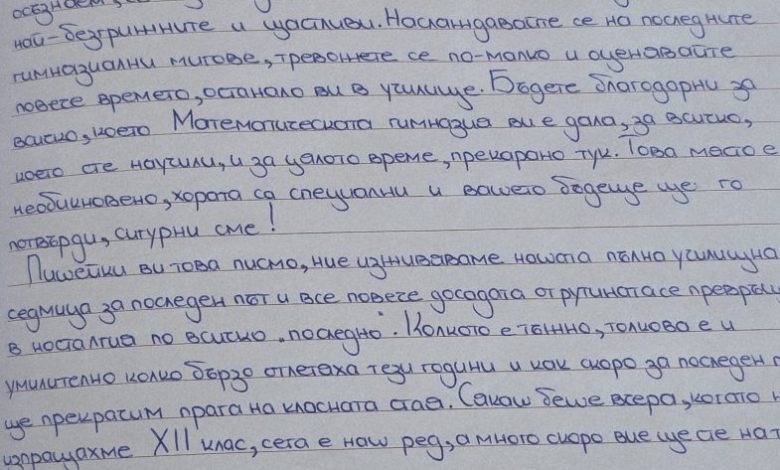 осъзнаем,
най-безгрижните и щастливи. Наслаждавайте се на последните
гимназиални мигове, тревожете се по-малко и оценавайте
повече времето, останало ви в училище. Бъдете благодарни за
всичко, което Математическата гимназия ви е дала, за всичко,
което сте научили, и за цялото време, прекарано тук. Това място е
необикновено, хората са специални и вашето бъдеще ще го
потвърди, сигурни сме!
Пишейки ви това писмо, ние изживяваме нашата пълна училищна
седмица за последен път и все повече досадата от рутината се превръща
в носталгия по всичко „последно“. Колкото е тъжно, толкова е и
умилително колко бързо отлетяха тези години и как скоро за последен
ще прекрасим прага на класната стая. Сякаш беше вчера, когато
изпращахме XII клас, сега е наш ред, а много скоро вие ще сте на